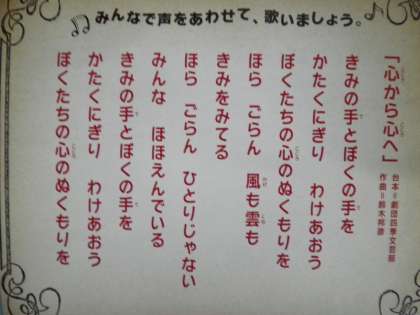 みんなで声をあわせて、歌いましょう。
「心から心へ」
台本=劇団四季文芸部
作曲=鈴木邦彦
きみの手とぼくの手を
かたくにぎり わけあおう
ぼくたちの心のぬくもりを
ほら ごらん 風も雲も
きみをみてる
ほら ごらん ひとりじゃない
みんな ほほえんでいる
きみの手とぼくの手を
かたくにぎり わけあおう
ぼくたちの心のぬくもりを